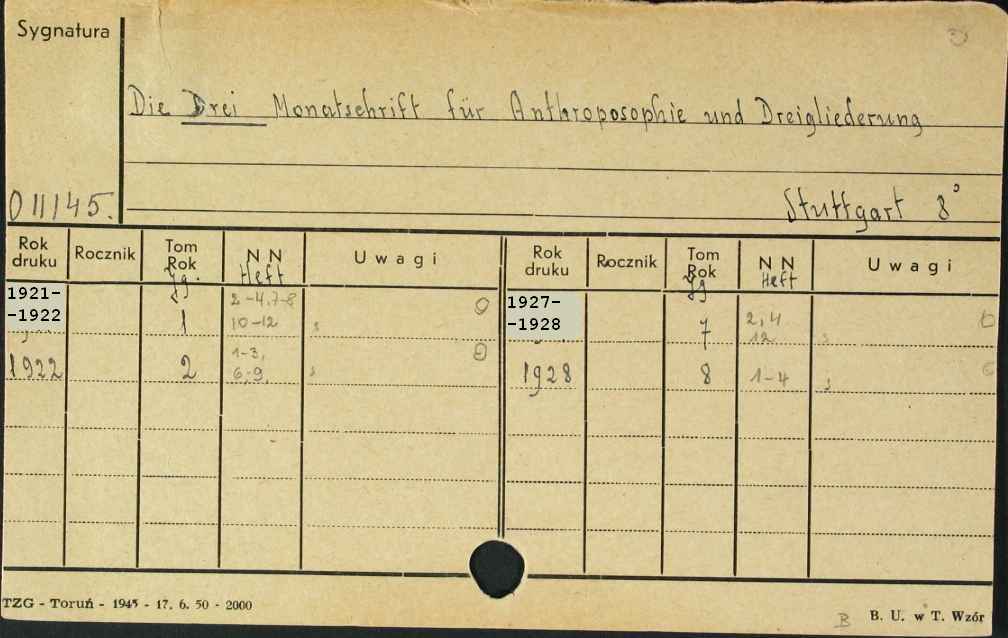 Sygnatura
Die Drei Monatschrift für Anthroposophie und Dreigliederung
011145.
Stuttgart 8°
Rok druku Rocznik Tom Rok Jg. N N Heft Uwagi Rok druku Rocznik Tom Rok Jg N N Heft Uwagi
1921-
-1922 1 2-4,7-8
10-12
1927-
-1928 7 2,4
12
1922 2 1-3,
6,-9,
1928 8 1-4
TZG - Toruń - 1945 - 17. 6. 50 - 2000
B B. U. w T. Wzór